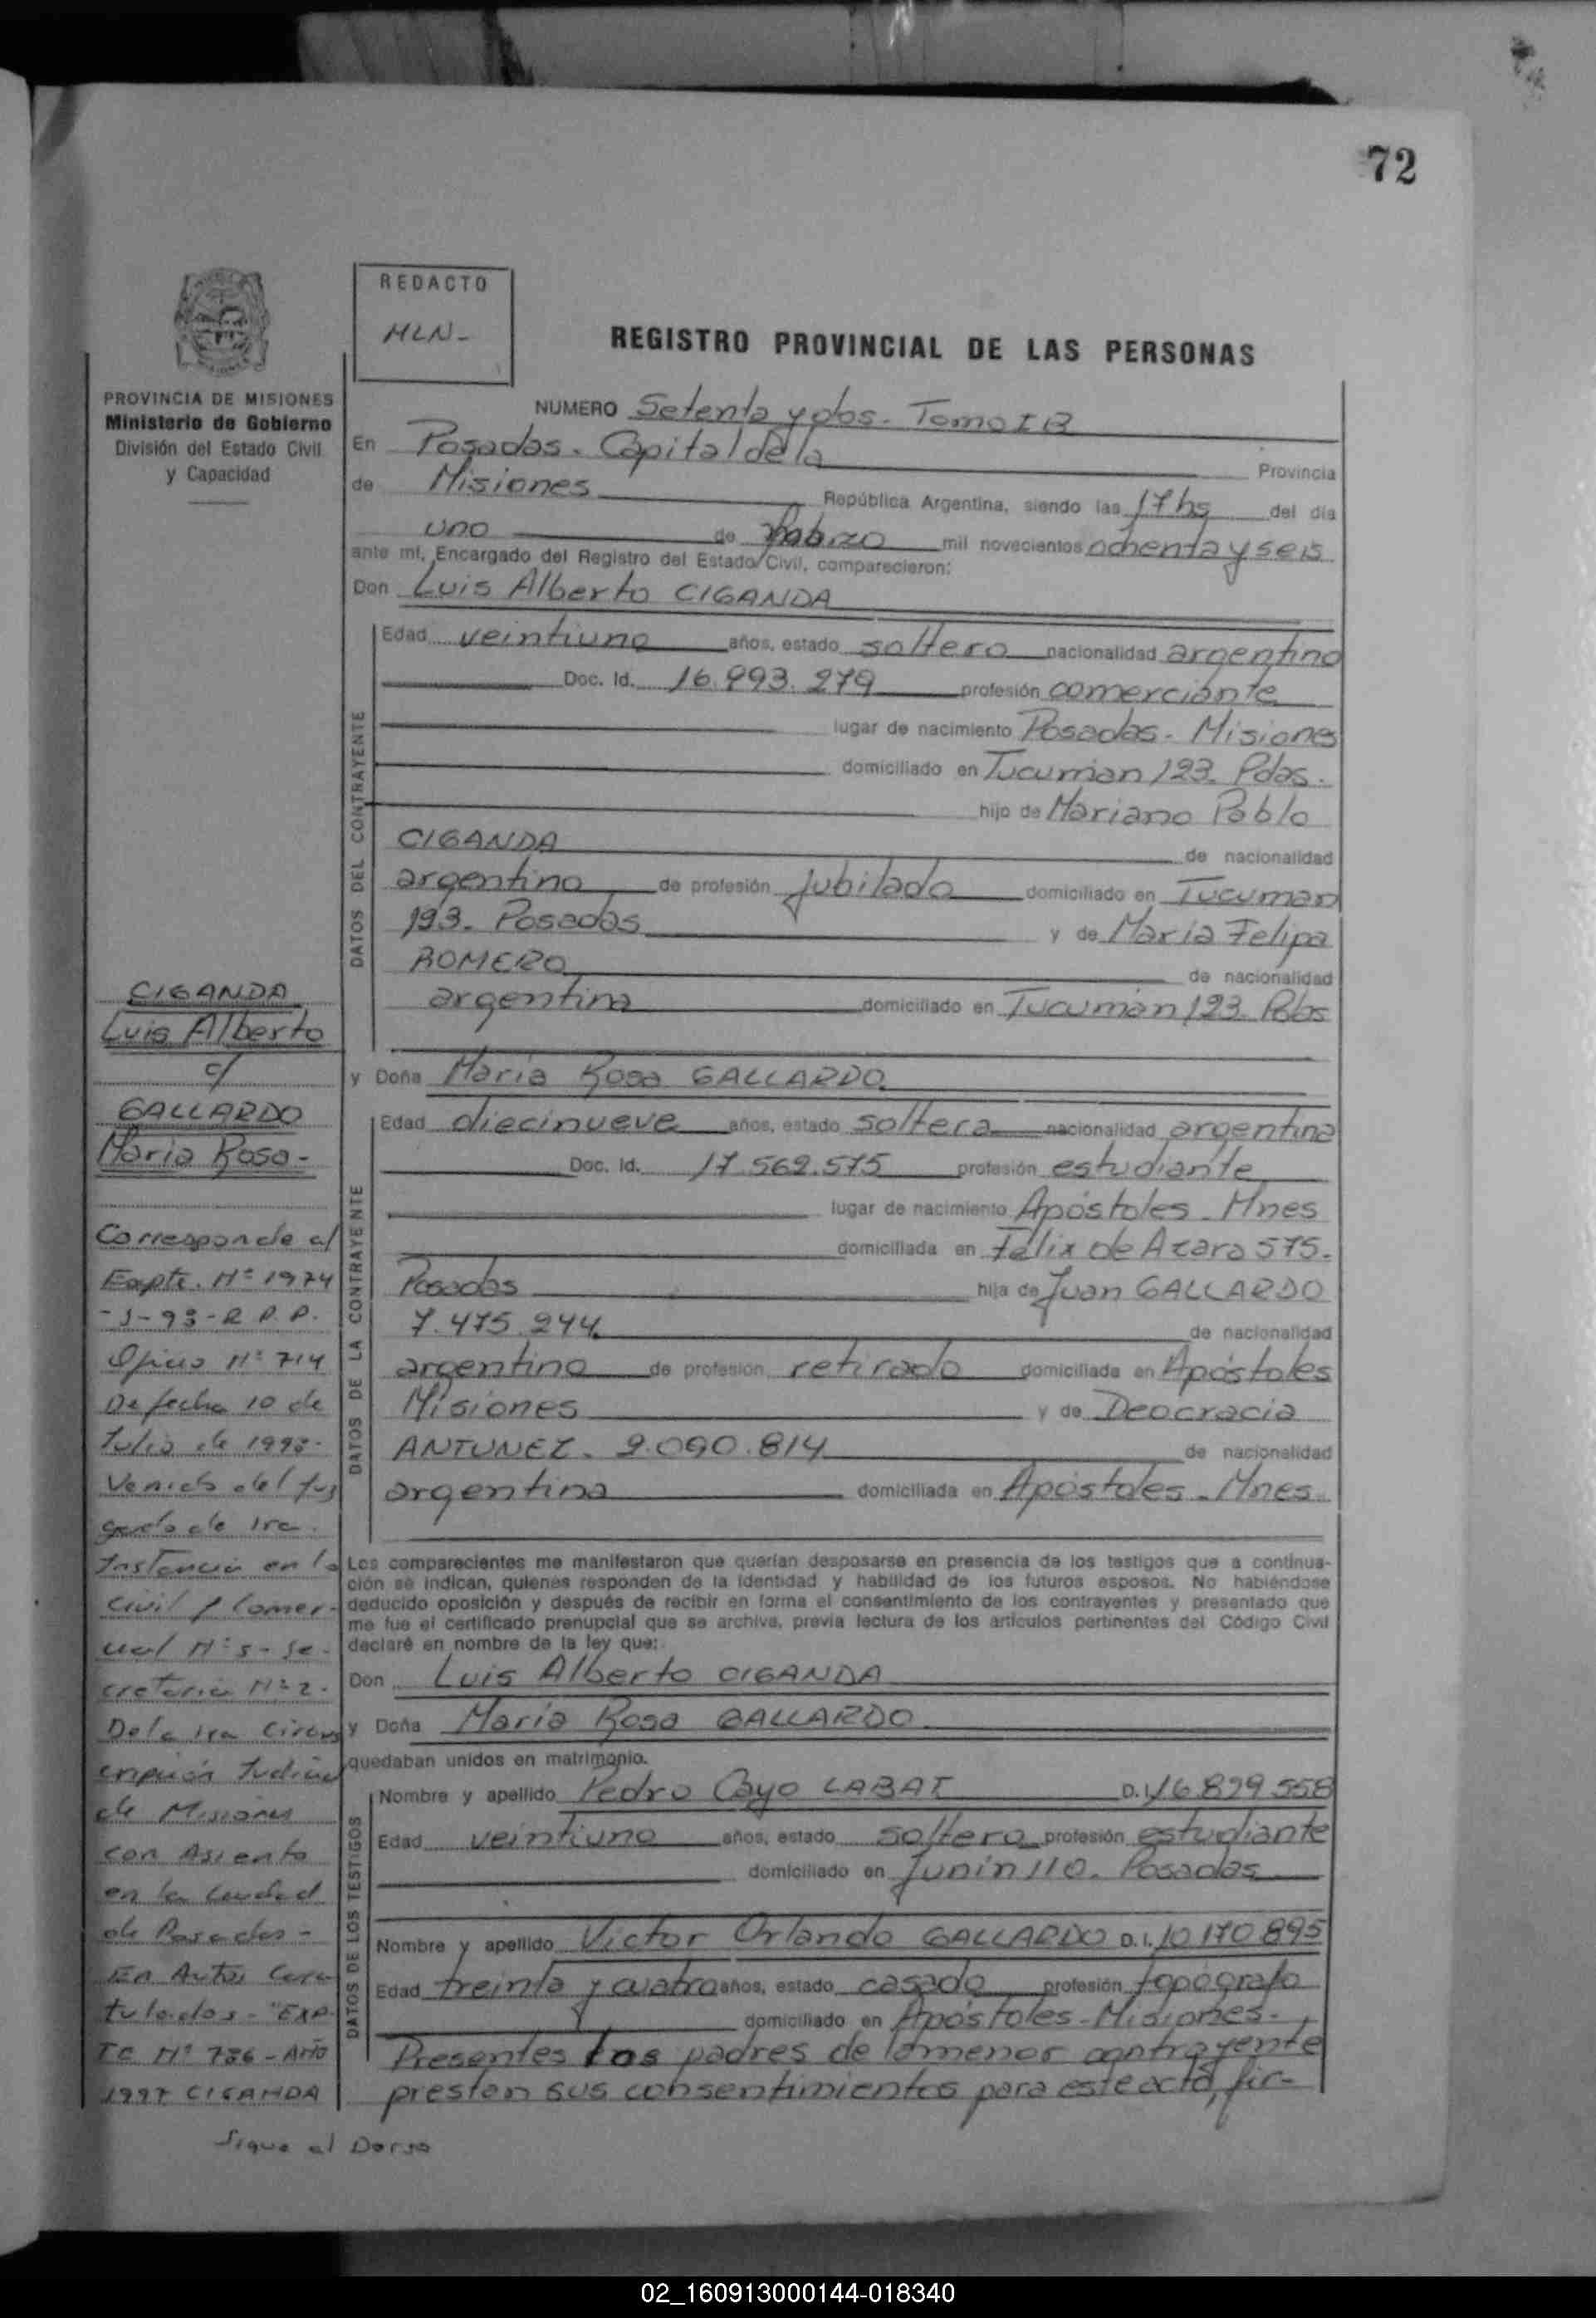 72
REDACTO
MLN-
REGISTRO PROVINCIAL DE LAS PERSONAS
PROVINCIA DE MISIONES
Ministerio de Gobierno
División del Estado Civil
y Capacidad
NUMERO Setenta y dos. Tomo I B
En Posadas. Capital de la Provincia
de Misiones República Argentina, siendo las 17 hs del día
uno de mil novecientos ochenta y seis
ante mí, Encargado del Registro del Estado Civil, comparecieron:
Don Luis Alberto CIGANDA
DATOS DEL CONTRAYENTE
Edad veintiuno años, estado soltero nacionalidad argentino
Doc. Id. 16.993.279 profesión comerciante
lugar de nacimiento Posadas - Misiones
domiciliado en Tucumán 193. Pdas.
hijo de Mariano Pablo
CIGANDA de nacionalidad
argentino de profesión jubilado domiciliado en Tucuman
193. Posadas y de María Felipa
ROMERO de nacionalidad
argentina domiciliado en Tucumán 193. Pdas
y Doña María Rosa GALLARDO
DATOS DE LA CONTRAYENTE
Edad diecinueve años, estado soltera nacionalidad argentina
Doc. Id. 17.569.575 profesión estudiante
lugar de nacimiento Apóstoles - Mnes
domiciliada en Félix de Azara 575.
Posadas hija de Juan GALLARDO
7.475.244 de nacionalidad
argentino de profesión retirado domiciliada en Apóstoles
Misiones y de Deocracia
ANTUNEZ. 9.090.814 de nacionalidad
argentina domiciliada en Apóstoles - Mnes
Los comparecientes me manifestaron que querían desposarse en presencia de los testigos que a continua-
ción se indican, quienes responden de la identidad y habilidad de los futuros esposos. No habiéndose
deducido oposición y después de recibir en forma el consentimiento de los contrayentes y presentado que
me fue el certificado prenupcial que se archiva, previa lectura de los artículos pertinentes del Código Civil
declaré en nombre de la ley que:
Don Luis Alberto CIGANDA
y Doña María Rosa GALLARDO
quedaban unidos en matrimonio.
DATOS DE LOS TESTIGOS
Nombre y apellido Pedro Cayo LABAT D.I. 16.829.558
Edad veintiuno años, estado soltero profesión estudiante
domiciliado en Junín 110. Posadas
Nombre y apellido Victor Orlando GALLARDO D.I. 10.170.895
Edad treinta y cuatro años, estado casado profesión topógrafo
domiciliado en Apóstoles - Misiones.
Presentes los padres de la menor contrayente
prestan sus consentimientos para este acto, fir-
CIGANDA
Luis Alberto
c/
GALLARDO
María Rosa-
Corresponde al
Expte. Nº 1974
-J-93-R.P.P.
Oficio Nº 714
De fecha 10 de
Julio de 1998-
Venido del Juz
gado de 1ra.
Instancia en lo
Civil y Comer-
cial Nº 5 - Se-
cretaria Nº 2.
De la 1ra Circuns
cripción Judicial
de Misiones
con Asiento
en la Ciudad
de Posadas -
En Autos Cara
tulados - "EXP-
TE Nº 786 - Año
1997 CIGANDA
Sigue al Dorso
02_160913000144-018340